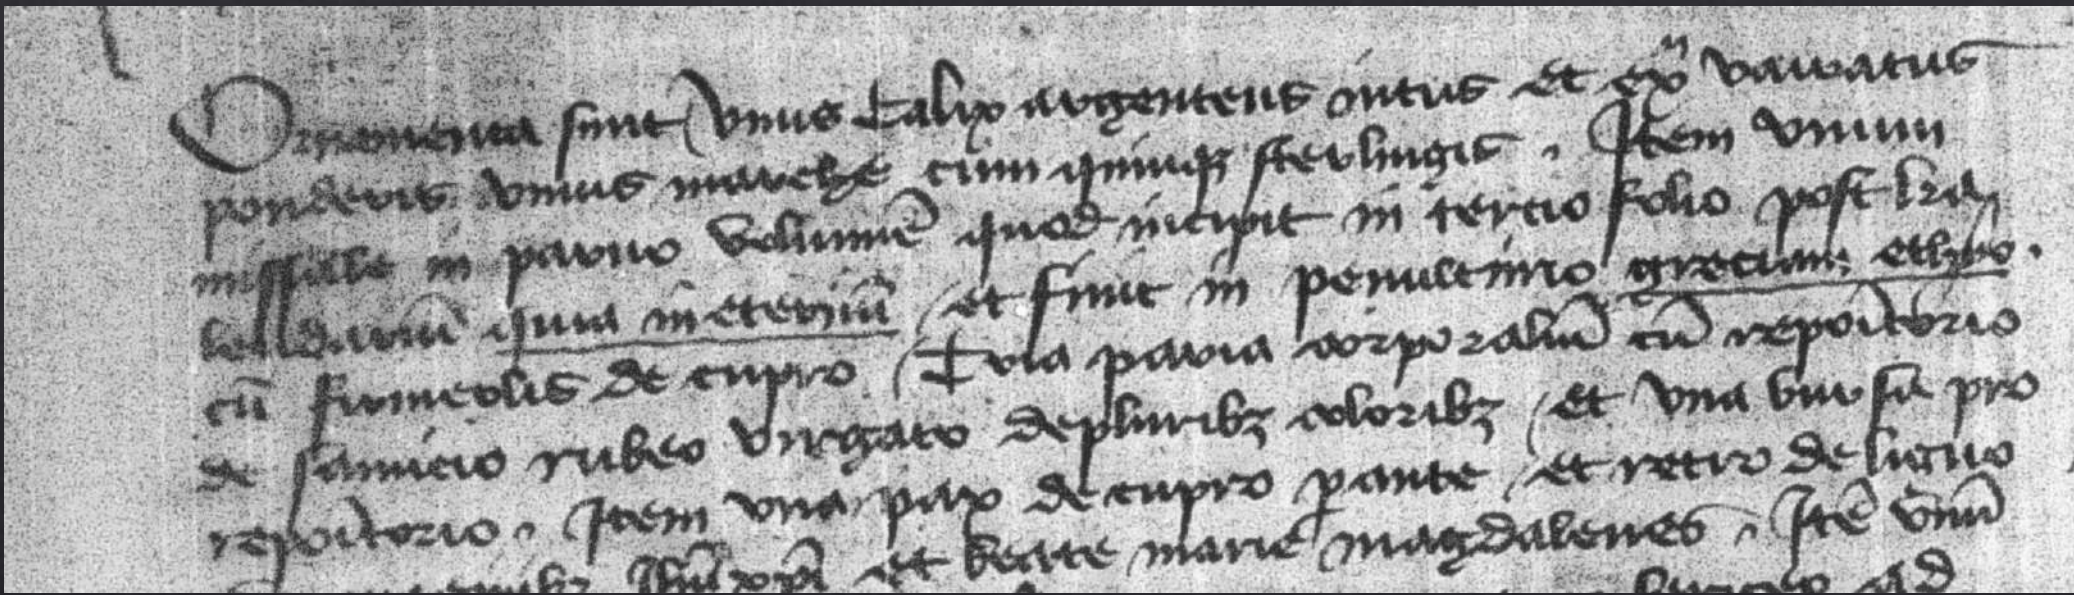 Ornamenta sunt / vnus Calix argenteus intus et ext^a vairatus
ponderis vnius marche cum quinq3 sterlingis . Item vnum
missale in paruo volumiē quod incipit in tercio folio post
kalēdariū quia in eternū / et finit in penultimo greciam
cū firmeolis de cupro / Tria paria corporaliū cū repoītorio
de samicio rubeo virgato de pluribȝ coloribȝ / et vna bursa pro
repoītorio . Item vna pax de cupro p ante / et retro de ligno
Ihū xp̄i et beate marie magdalenes . Itē vnū
ad